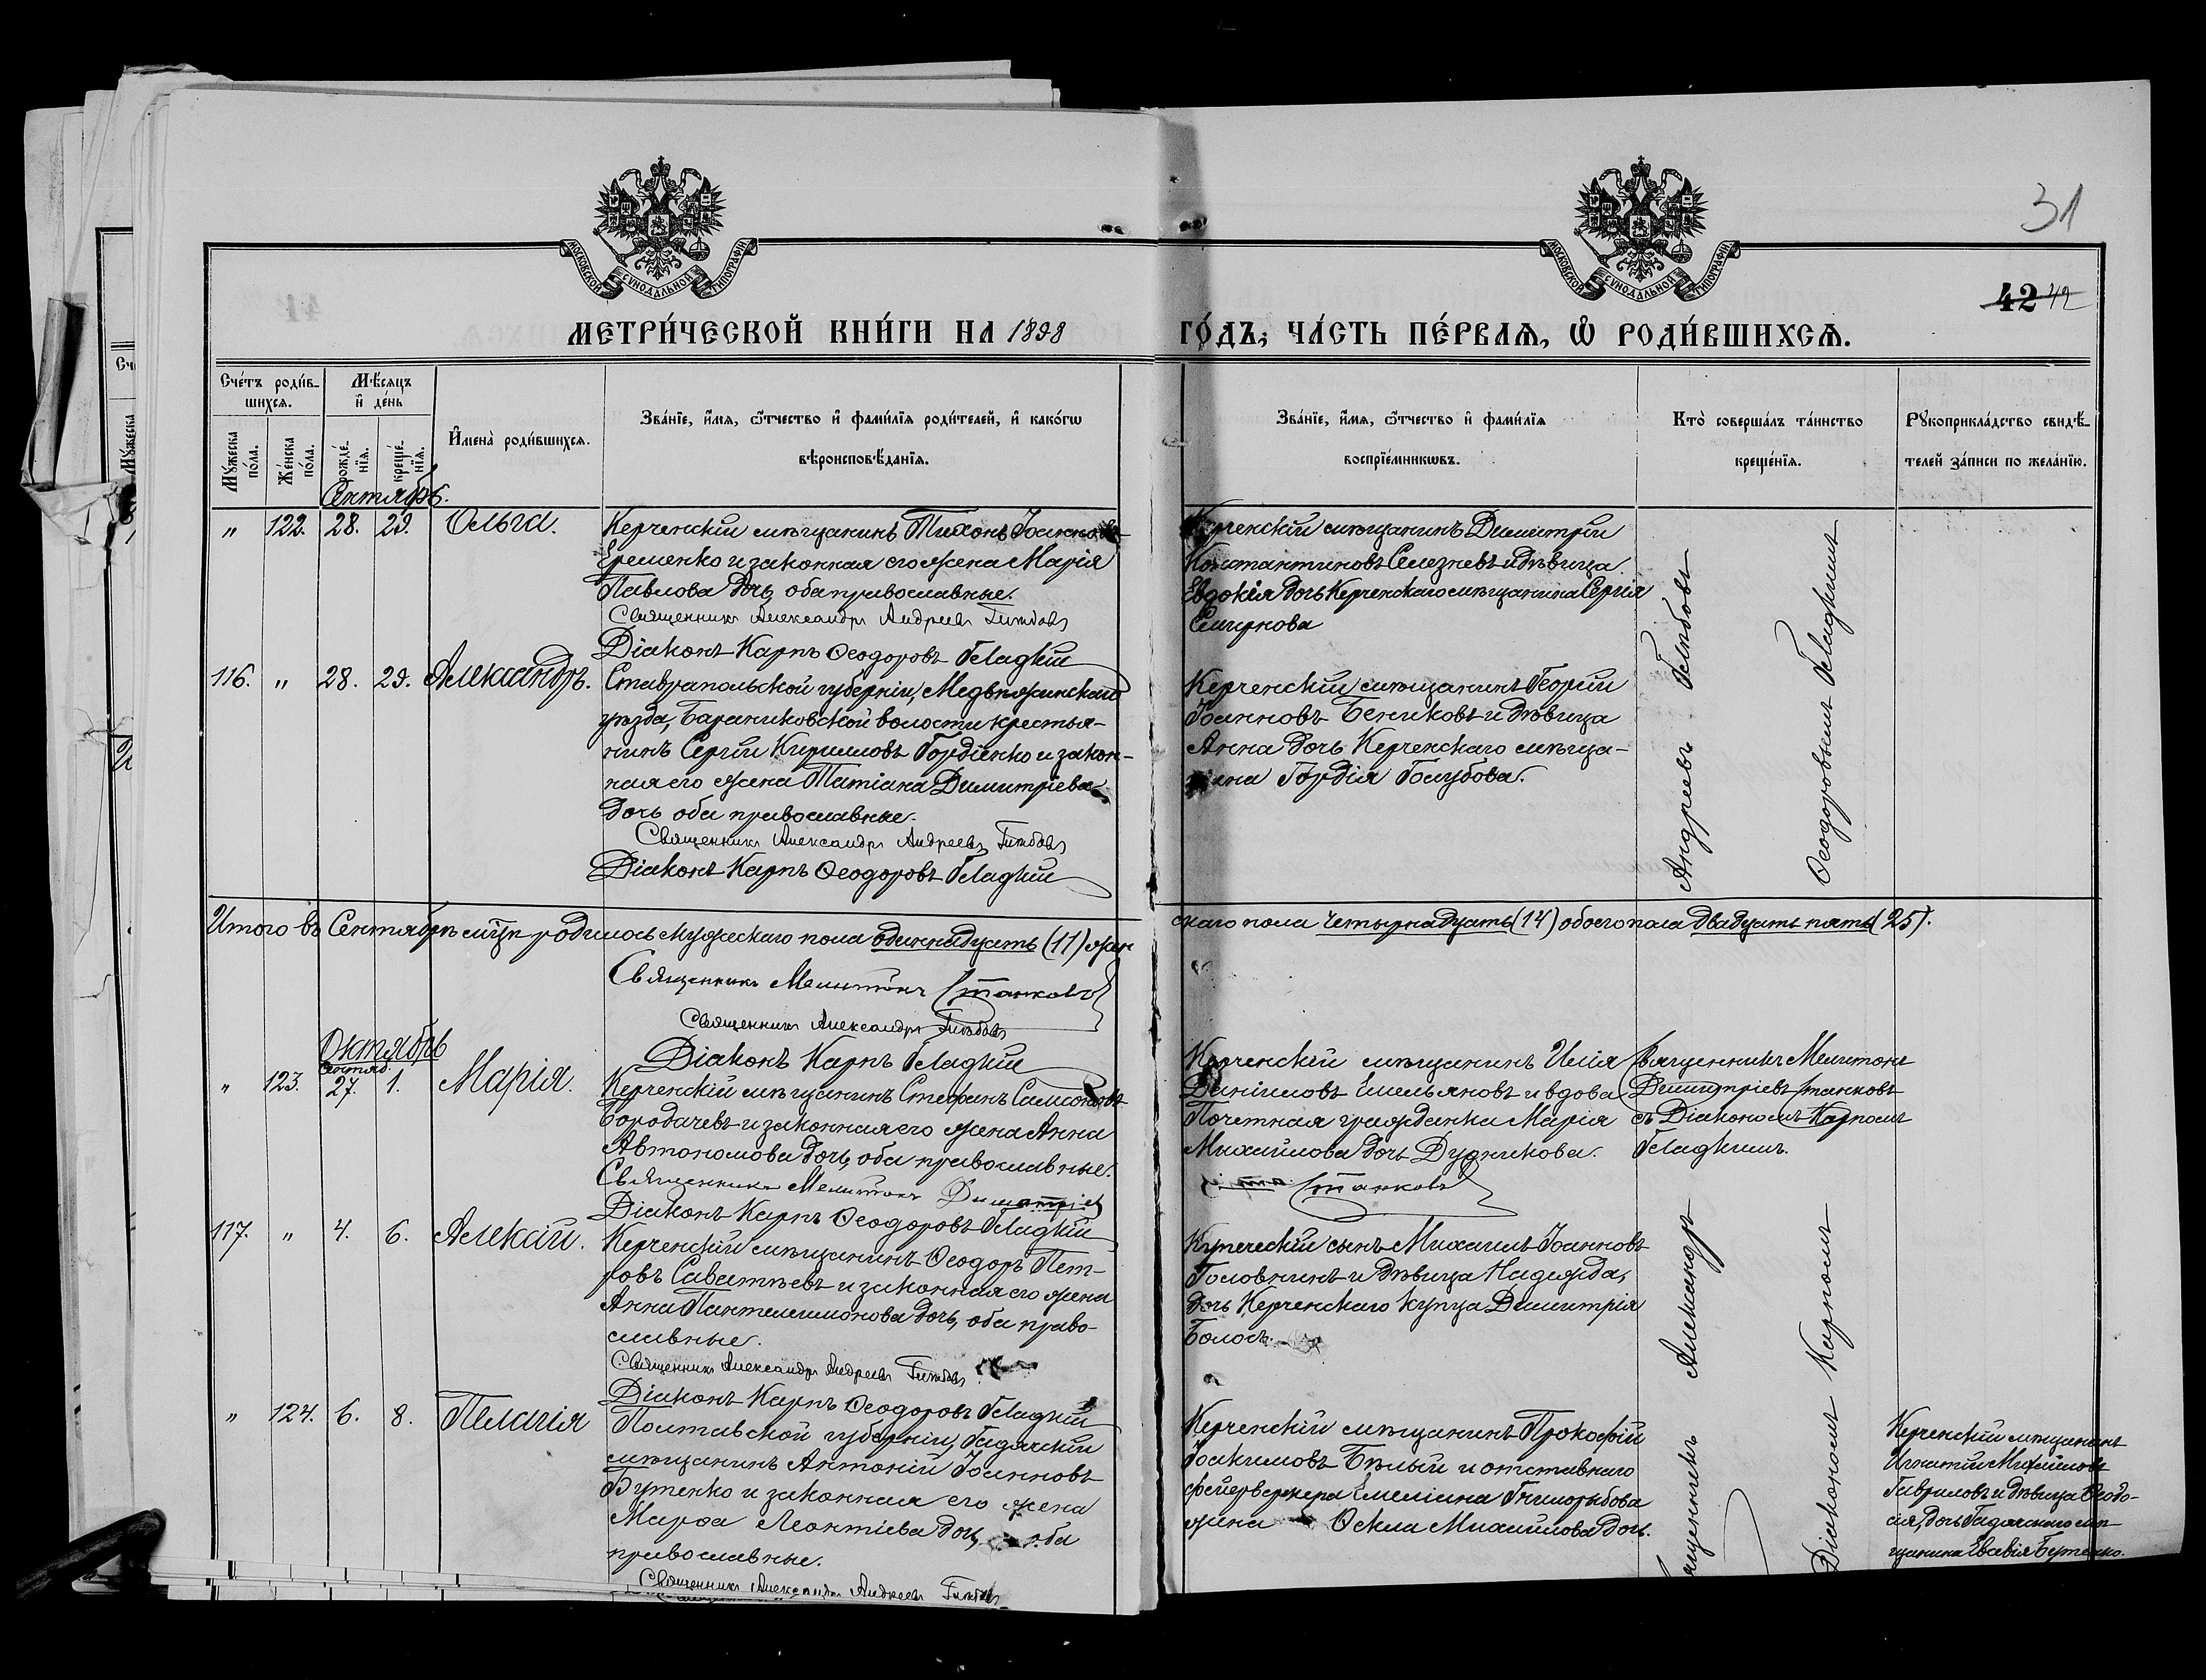 31
42 42
МОСКОВСКОЙ СѴНОДАЛЬНОЙ ТИПОГРАФІИ
МОСКОВСКОЙ СѴНОДАЛЬНОЙ ТИПОГРАФІИ
МЕТРИ́ЧЕСКОЙ КНИ́ГИ НА 1898
ГО́ДЪ, ЧА́СТЬ ПЕ́РВАѦ, Ѡ҆ РОДИ́ВШИХСѦ.
Сче́тъ роди́в-
шихсѧ.
Мѣ́сѧцъ
и҆ де́нь
Мꙋ́жеска
по́ла.
Же́нска
по́ла.
рожде́-
нїѧ.
креще́-
нїѧ.
И҆мена̀ роди́вшихсѧ.
Зва́нїе, и҆́мѧ, ѻ҆́тчество и҆ фами́лїѧ роди́телей, и҆ како́гѡ
вѣроисповѣ́данїѧ.
Зва́нїе, и҆́мѧ, ѻ҆́тчество и҆ фами́лїѧ
воспрїе́мникѡвъ.
Кто̀ соверша́лъ та́инство
креще́нїѧ.
Рꙋкоприкла́дство свидѣ́-
телей за́писи по жела́нїю.
Сентябрь.
" 122. 28. 29. Ольга.
Керченскій мѣщанинъ Тихонъ Іоанновъ
Еременко и законная его жена Марія
Павлова дочь, оба православные.
Священникъ Александръ Андреевъ Глѣбовъ
Діаконъ Карпъ Ѳеодоровъ Гладкій
Керченскій мѣщанинъ Димитрій
Константиновъ Селезневъ и дѣвица
Евдокія дочь Керченскаго мѣщанина Сергія
Смирнова
116. " 28. 29. Александръ.
Ставропольской губерніи, Медвѣжинскаго
уѣзда, Бараниковской волости крестья-
нинъ Сергій Кирилловъ Гордіенко и закон-
ная его жена Татіана Димитріева
дочь оба православные.
Священникъ Александръ Андреевъ Глѣбовъ
Діаконъ Карпъ Ѳеодоровъ Гладкій
Керченскій мѣщанинъ Георгій
Іоанновъ Бенковъ и дѣвица
Анна дочь Керченскаго мѣща-
нина Гордія Голубова.
Андреевъ Глѣбовъ
Ѳеодоровымъ Гладкимъ
Итого въ Сентябрѣ мѣцѣ родилось мужескаго пола одиннадцать (11) жен
скаго пола четырнадцать (14) обоего пола двадцать пять (25).
Священникъ Мелитонъ Станковъ
Священникъ Александръ Глѣбовъ
Діаконъ Карпъ Гладкій
Октябрь
Сентяб.
" 123. 27. 1. Марія.
Керченскій мѣщанинъ Стефанъ Самсоновъ
Бородачевъ и законная его жена Анна
Автономова дочь, оба православные.
Священникъ Мелитонъ Димитріев
Станковъ
Діаконъ Карпъ Ѳеодоровъ Гладкій
Керченскій мѣщанинъ Илія
Даніиловъ Емельяновъ и вдова
Почетная гражданка Марія
Михаилова дочь Дудникова.
Священникъ Мелитонъ
Димитріевъ Станковъ
съ Діакономъ Карпомъ
Гладкимъ.
117. " 4. 6. Алексій.
Керченскій мѣщанинъ Ѳеодоръ Пет-
ровъ Саватѣевъ и законная его жена
Анна Пантелеимонова дочь, оба право-
славные.
Священникъ Александръ Андреевъ Глѣбовъ
Діаконъ Карпъ Ѳеодоровъ Гладкій
Купеческій сынъ Михаилъ Іоанновъ
Головнинъ и дѣвица Надежда,
дочь Керченскаго купца Димитрія
Болосъ.
" 124. 6. 8. Пелагія
Полтавской губерніи, Гадячскій
мѣщанинъ Антоній Іоанновъ
Бутенко и законная его жена
Марѳа Леонтіева дочь, оба
православные.
Священникъ Александръ Андреевъ Глѣбовъ
Керченскій мѣщанинъ Прокофій
Іоакимовъ Бѣлый и отставнаго
фейерверкера Емеліана Гнилорыбова
жена Ѳекла Михаилова дочь.
Священникъ Александръ
Діакономъ Карпомъ
Керченскій мѣщанинъ
Игнатій Михаиловъ
Гавриловъ и дѣвица Ѳеодо-
сія, дочь Гадячскаго мѣ-
щанина Евсевія Бутенко.